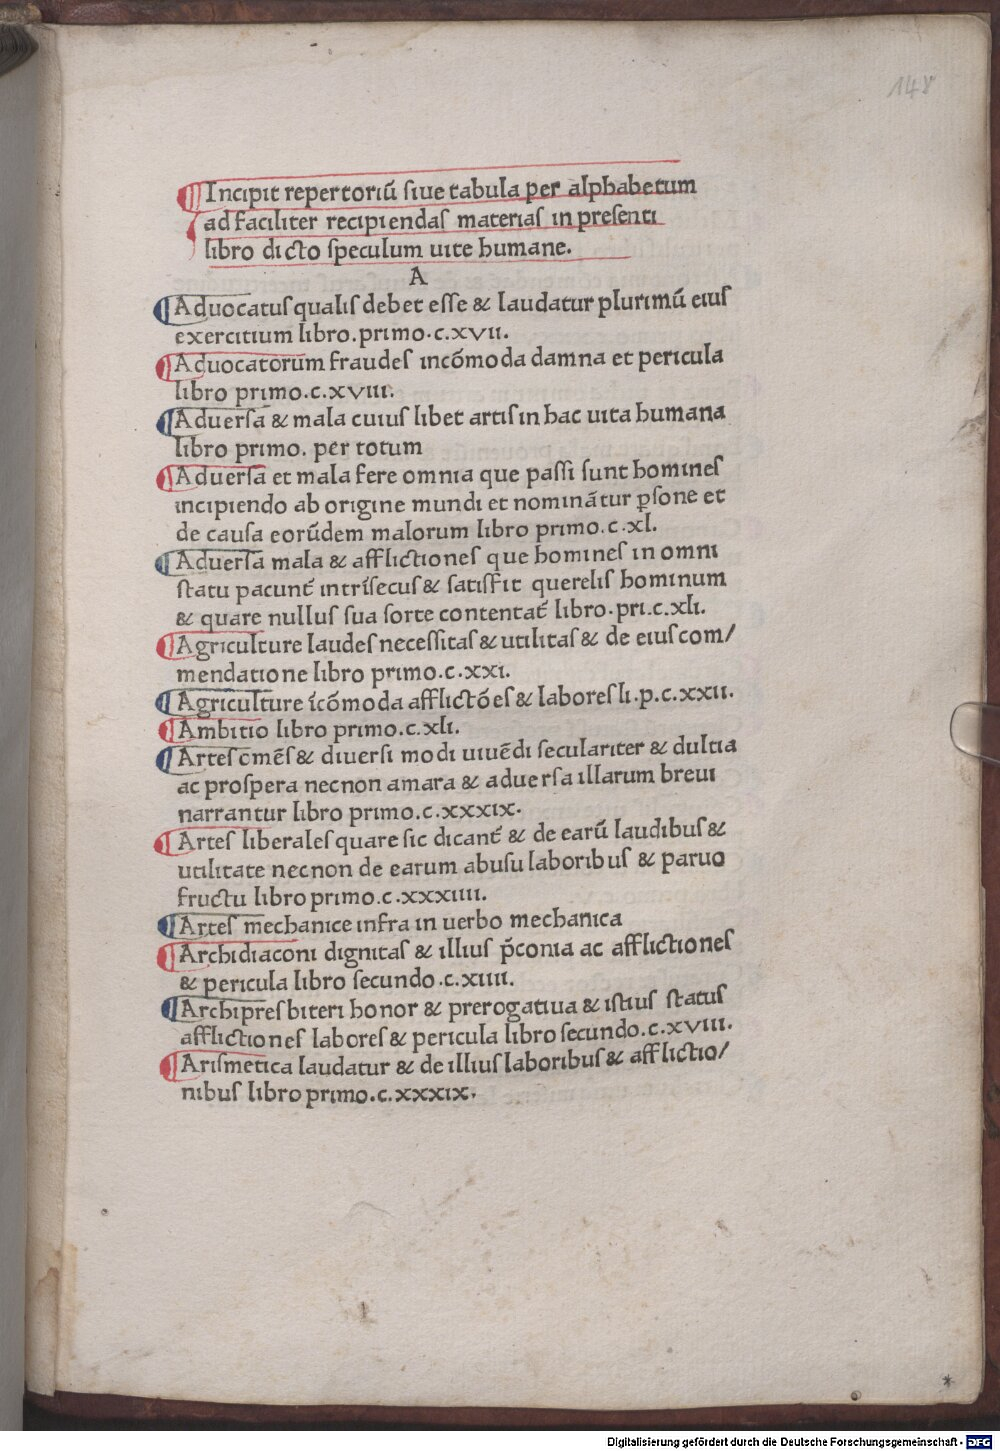 148
Incipit repertoriū ſiue tabula per alphabetum
ad faciliter recipiendaſ materiaſ in preſenti
libro dicto ſpeculum uite humane.
A
Aduocatuſ qualiſ debet eſſe & laudatur plurimū eiuſ
exercitium libro.primo.c.xvii.
Aduocatorum fraudeſ incōmoda damna et pericula
libro primo.c.xviii.
Aduerſa & mala cuiuſ libet artiſ in hac uita humana
libro primo. per totum
Aduerſa et mala fere omnia que paſſi ſunt homineſ
incipiendo ab origine mundi et nominātur ꝑſone et
de cauſa eorūdem malorum libro primo.c.xl.
Aduerſa mala & afflictioneſ que homineſ in omni
ſtatu pacunt̄ intrīſecuſ & ſatiſfit quereliſ hominum
& quare nulluſ ſua ſorte contentat̄ libro.pri.c.xli.
Agriculture laudeſ neceſſitaſ & utilitaſ & de eiuſ com/
mendatione libro primo.c.xxi.
Agriculture īcōmoda afflictōeſ & laboreſ li.p.c.xxii.
Ambitio libro primo.c.xli.
Arteſ cm̄eſ & diuerſi modi uiuēdi ſeculariter & dultia
ac proſpera necnon amara & aduerſa illarum breui
narrantur libro primo.c.xxxix.
Arteſ liberaleſ quare ſic dicant̄ & de earū laudibuſ &
utilitate necnon de earum abuſu laboribuſ & paruo
fructu libro primo.c.xxxiiii.
Arteſ mechanice infra in uerbo mechanica
Archidiaconi dignitaſ & illiuſ p̄conia ac afflictioneſ
& pericula libro ſecundo.c.xiiii.
Archipreſbiteri honor & prerogatiua & iſtiuſ ſtatuſ
afflictioneſ laboreſ & pericula libro ſecundo.c.xviii.
Ariſmetica laudatur & de illiuſ laboribuſ & afflictio/
nibuſ libro primo.c.xxxix.
Digitalisierung gefördert durch die Deutsche Forschungsgemeinschaft - DFG